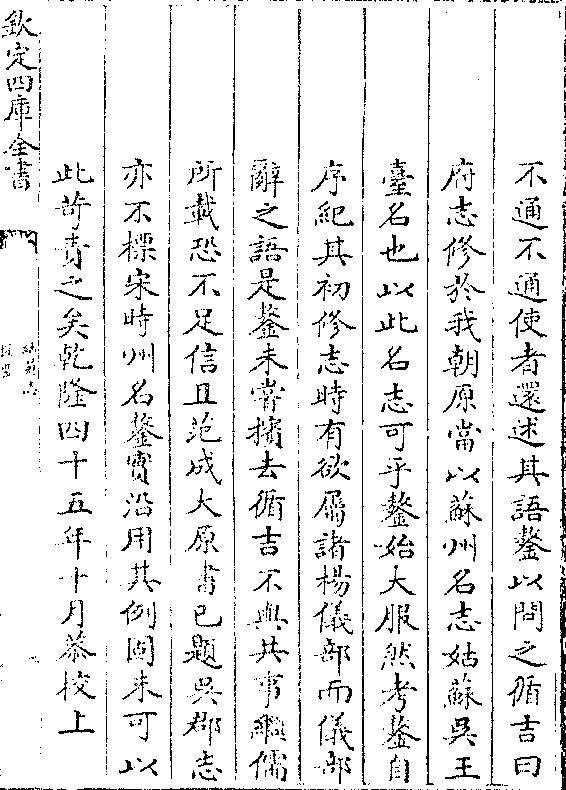 不通不通使者還述其語鏊以問之循吉曰
府志修於我朝原當以蘇州名志姑蘇吳王
臺名也以此名志可乎鏊始大服然考鏊自
序紀其初修志時有欲屬諸楊儀部而儀部
辭之語是鏊未嘗擯去循吉不與共事繼儒
所載恐不足信且范成大原書已題吳郡志
亦不標宋時州名鏊實沿用其例固未可以
此苛責之矣乾隆四十五年十月恭校上
欽定四庫全書
姑蘇志